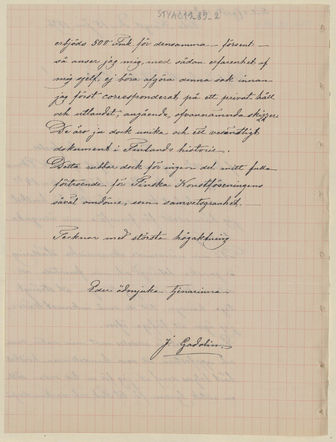 STYAC1289_2
erbjöds 500 Fmk för densamma – förrut –
så anser jag mig, med sådan erfarenhet af
mig sjelf, ej böra afgöra denna sak innan
jag först corresponderat på ett privat håll
och utlandet, angående, ofvannämnda skizzer.
De äro ju dock unika och ett värdefligt
dokument i Finlands historie.
Detta rubbar dock för ingen del mitt fulla
förtroende för Finska Konstföreningens
såväl omdöme, som samvetsgranhet.
Tecknar med största högaktning
Eder ödmjuka tjenarinna
J. Gadolin.